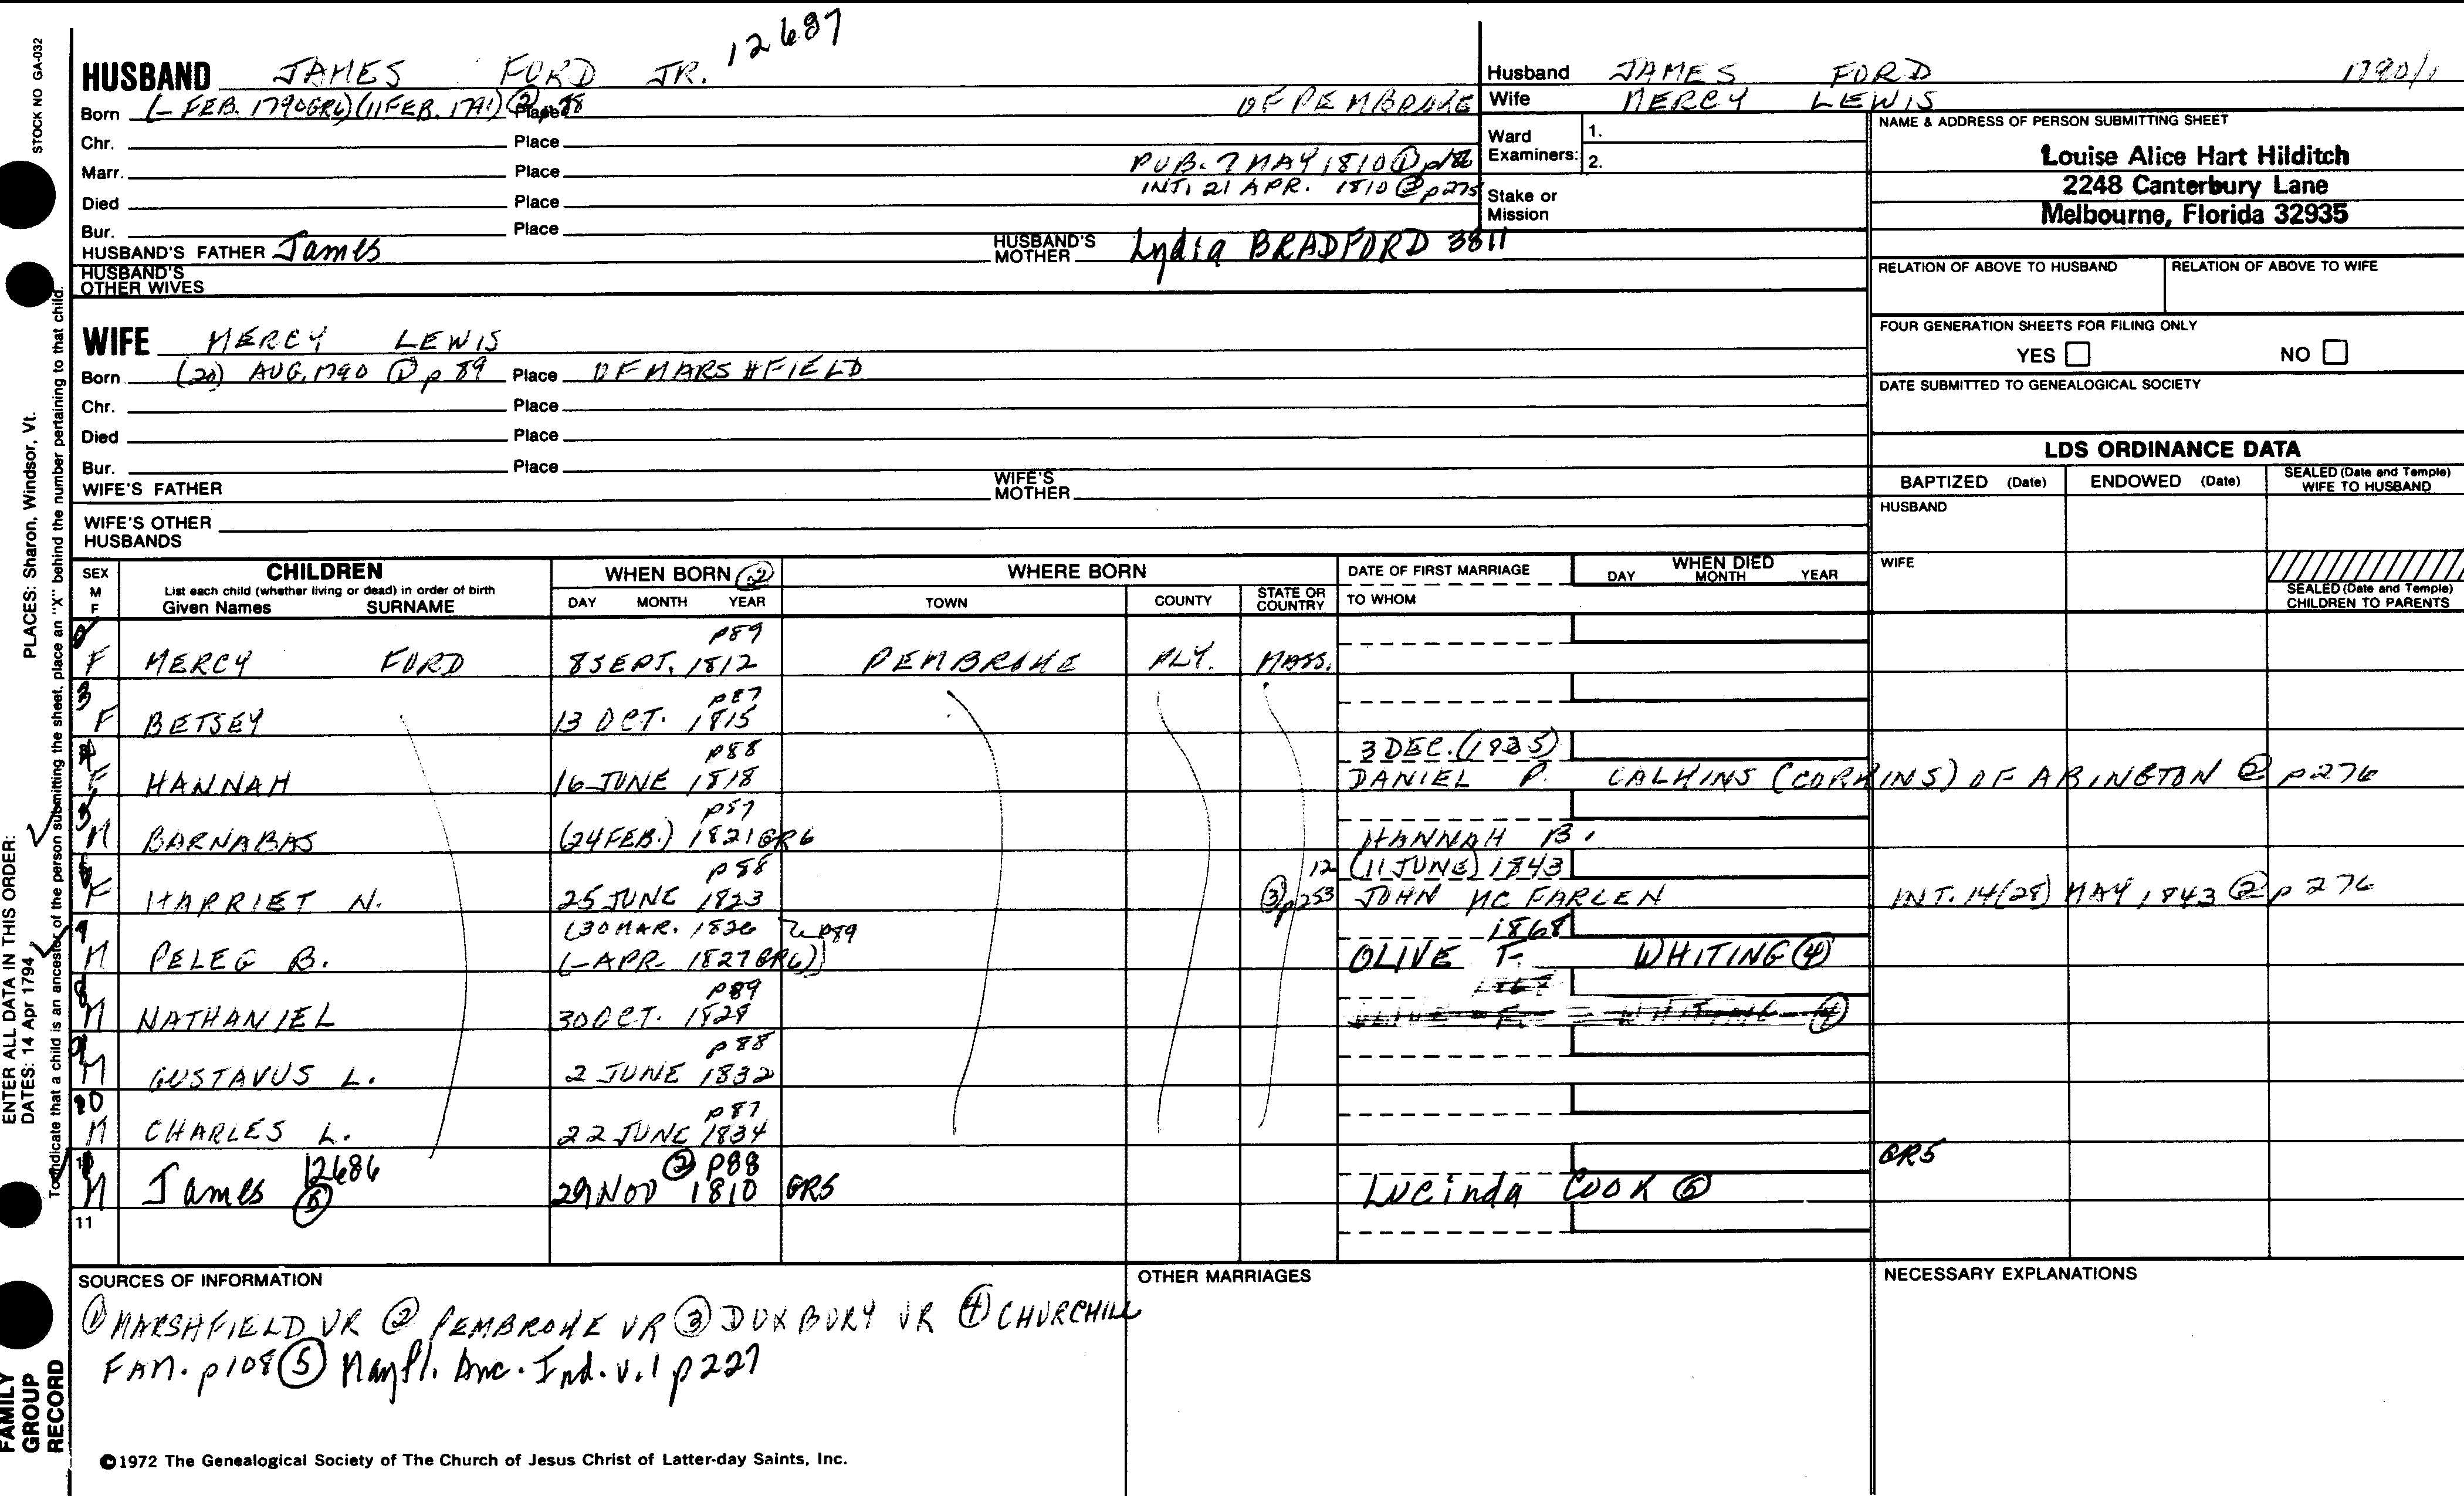 12687
HUSBAND JAMES FORD JR.
Born (- FEB. 1790 GR6) (11 FEB. 1791) ② p88 Place OF PEMBROKE
Chr. Place
Marr. Place PUB. 7 MAY 1810 ① p186
INT. 21 APR. 1810 ② p275
Died Place
Bur. Place
HUSBAND'S FATHER James HUSBAND'S MOTHER Lydia BRADFORD 3811
HUSBAND'S OTHER WIVES
WIFE MERCY LEWIS
Born (20) AUG. 1790 ① p 89 Place OF MARSHFIELD
Chr. Place
Died Place
Bur. Place
WIFE'S FATHER WIFE'S MOTHER
WIFE'S OTHER HUSBANDS
Husband JAMES FORD 1790/1
Wife MERCY LEWIS
Ward Examiners: 1.
2.
Stake or Mission
NAME & ADDRESS OF PERSON SUBMITTING SHEET
Louise Alice Hart Hilditch
2248 Canterbury Lane
Melbourne, Florida 32935
RELATION OF ABOVE TO HUSBAND RELATION OF ABOVE TO WIFE
FOUR GENERATION SHEETS FOR FILING ONLY
YES NO
DATE SUBMITTED TO GENEALOGICAL SOCIETY
LDS ORDINANCE DATA
BAPTIZED (Date) ENDOWED (Date) SEALED (Date and Temple) WIFE TO HUSBAND
HUSBAND
WIFE
SEALED (Date and Temple) CHILDREN TO PARENTS
SEX M F CHILDREN WHEN BORN ② WHERE BORN DATE OF FIRST MARRIAGE WHEN DIED
List each child (whether living or dead) in order of birth
Given Names SURNAME DAY MONTH YEAR TOWN COUNTY STATE OR COUNTRY TO WHOM DAY MONTH YEAR
2 p89
F MERCY FORD 8 SEPT. 1812 PEMBROKE PLY. MASS.
3 p87
F BETSEY 13 OCT. 1815
4 p88 3 DEC. (1835)
F HANNAH 16 JUNE 1818 DANIEL P. CALKINS (CORKINS) OF ABINGTON ② p276
5 p87
M BARNABAS (24 FEB.) 1821 GR6 HANNAH B.
6 p88 12 (11 JUNE) 1843
F HARRIET N. 25 JUNE 1823 ③ p253 JOHN MC FARLEN INT. 14(28) MAY 1843 ② p 276
7 (30 MAR. 1826 p89 1868
M PELEG B. (- APR. 1827 GR6)) OLIVE F. WHITING ④
8 p89
M NATHANIEL 30 OCT. 1829 OLIVE F. WHITING ④
9 p88
M GUSTAVUS L. 2 JUNE 1832
10 p87
M CHARLES L. 22 JUNE 1834
12686 ② p88 GR5
M James ⑤ 29 Nov 1810 GR5 Lucinda COOK ⑤
11
SOURCES OF INFORMATION
① MARSHFIELD VR ② PEMBROKE VR ③ DUXBURY VR ④ CHURCHILL
FAM. p108 ⑤ Mayfl. Anc. Ind. v.1 p227
OTHER MARRIAGES
NECESSARY EXPLANATIONS
©1972 The Genealogical Society of The Church of Jesus Christ of Latter-day Saints, Inc.
STOCK NO GA-032
PLACES: Sharon, Windsor, Vt.
ENTER ALL DATA IN THIS ORDER:
DATES: 14 Apr 1794
To indicate that a child is an ancestor of the person submitting the sheet, place an "X" behind the number pertaining to that child.
FAMILY GROUP RECORD